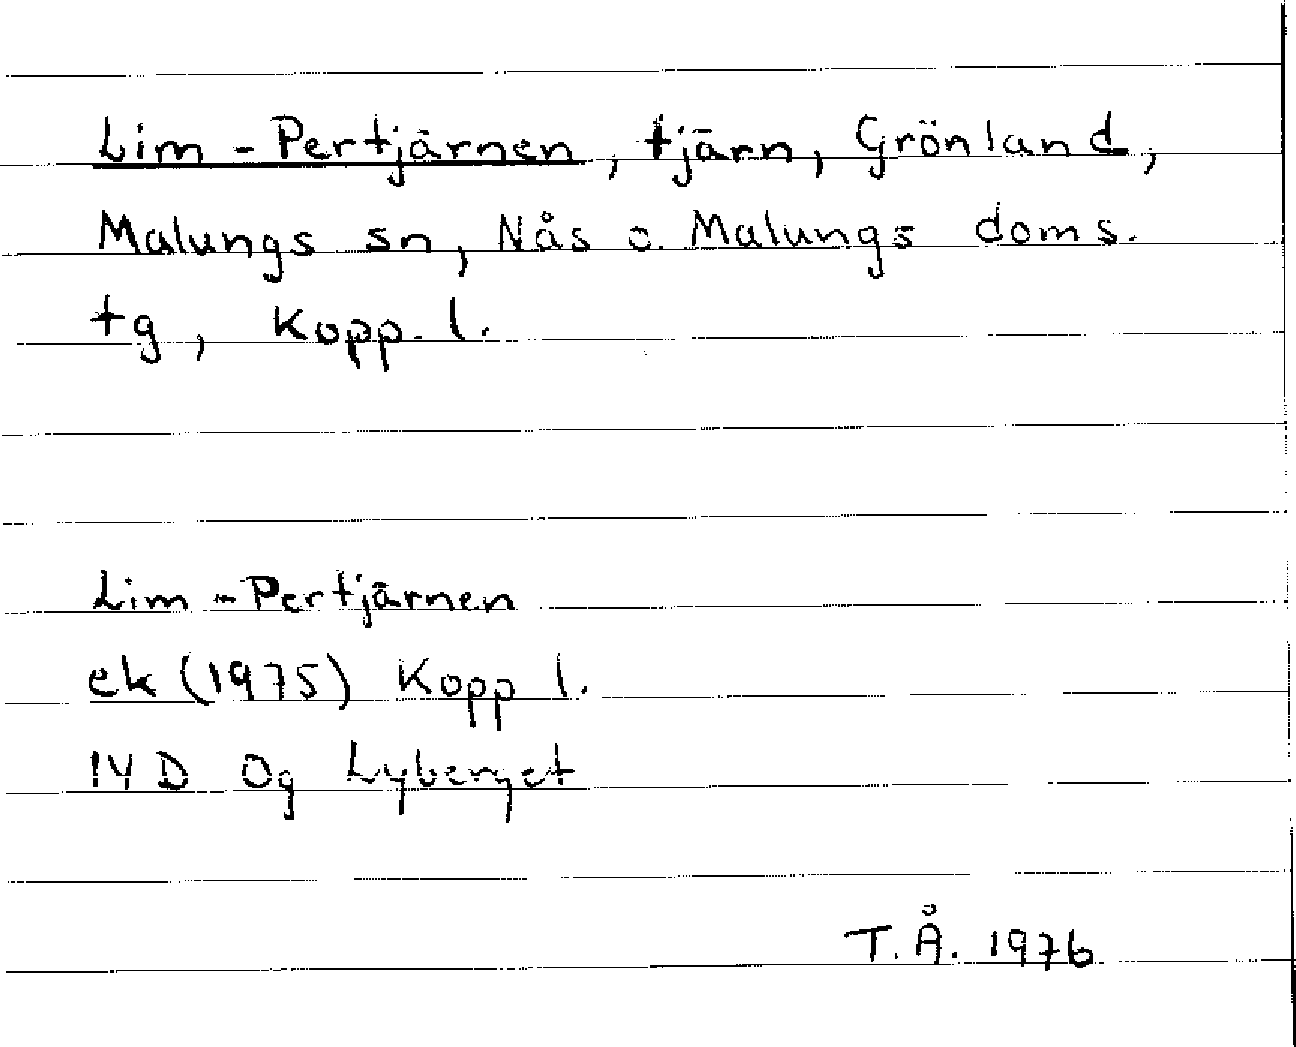 Lim - Pertjärnen, tjärn, Grönland,
Malungs sn, Nås o. Malungs doms.
tg, Kopp. l.
Lim - Pertjärnen
ek (1975) Kopp l.
14 D 0g Lyberget
T. Å. 1976